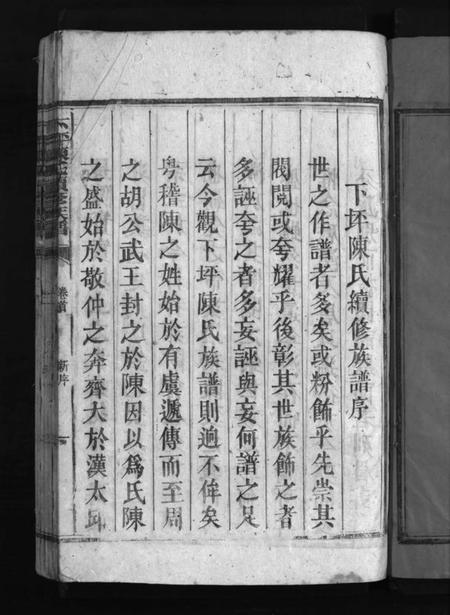 下坪陳氏續修族譜序
世之作譜者多矣或粉飾乎先崇其
閥閱或夸耀乎後彰其世族飾之者
多誣夸之者多妄誣與妄何譜之足
云今觀下坪陳氏族譜則逈不侔矣
粤稽陳之姓始於有虞遞傳而至周
之胡公武王封之於陳因以爲氏陳
之盛始於敬仲之奔齊大於漢太邱
卷首
新序
一